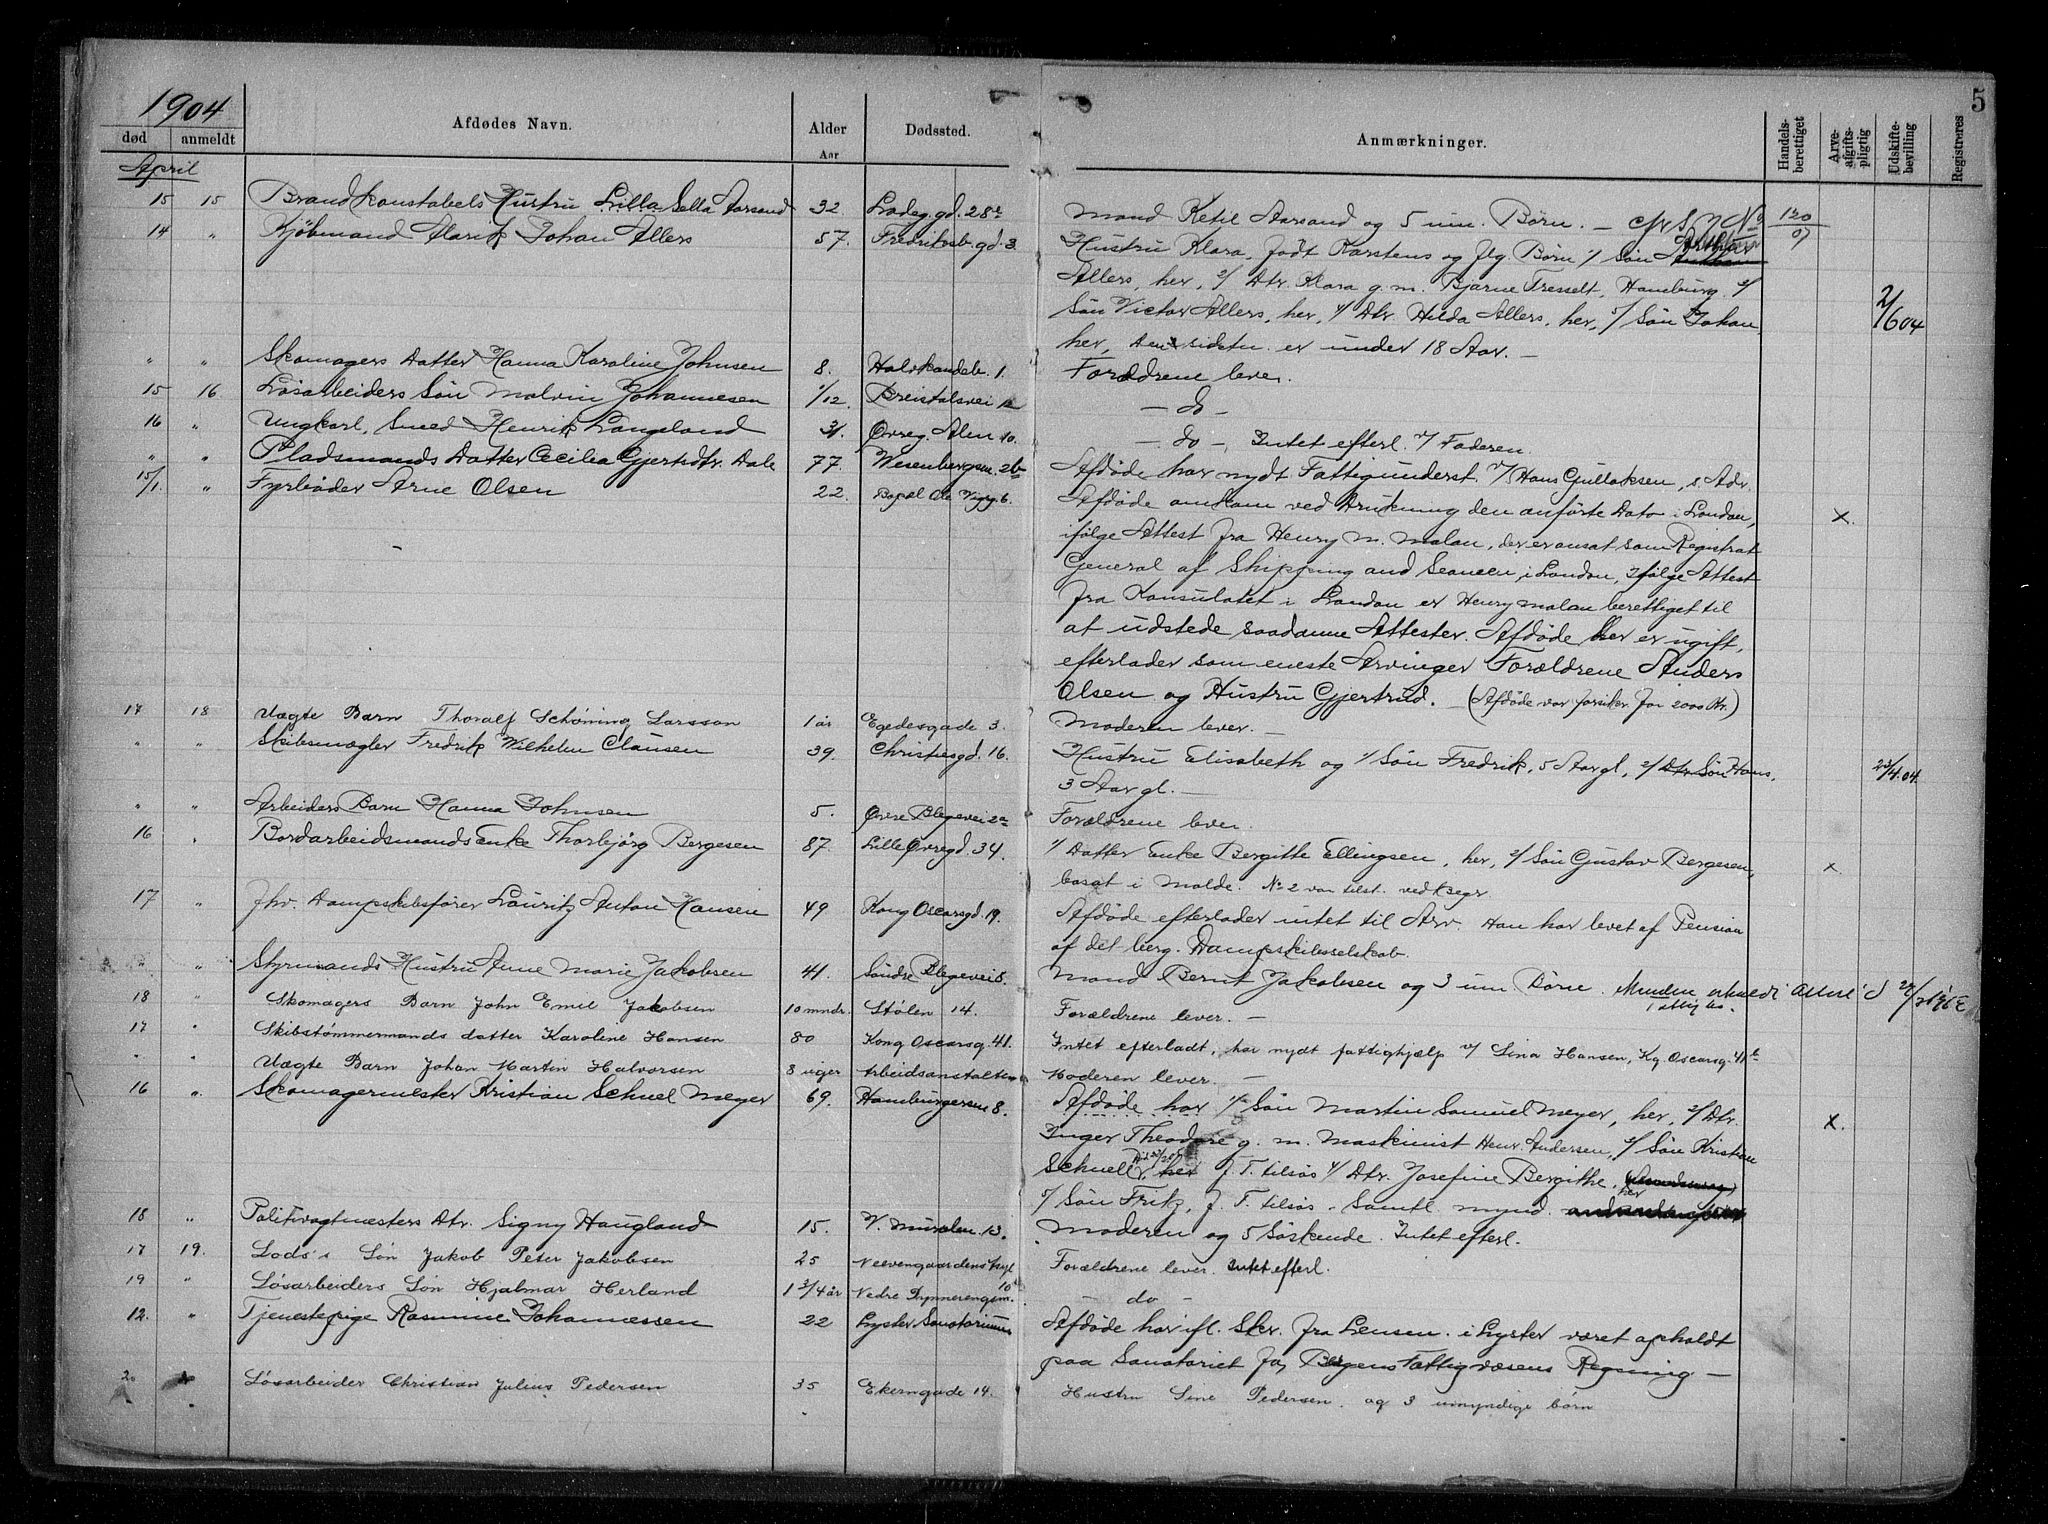 5
1904
død anmeldt Afdødes Navn. Alder Aar Dødssted. Anmærkninger. Handelsberettiget Arveafgiftspligtig Udskiftebevilling Registreres
April
15 15 Brandkonstabels Hustru Lilla Sella Aarsand 32 Ladeg.gd. 28 Mand Ketil Aarsand og 5 um. Børn. — 120/07
14 " Kjøbmand Alarik Johan Allers 57. Fredriksb.gd. 3. Hustru Klara, født Karstens og flg. Børn 1/ Søn Arthur
Allers, her, 2/ Dtr. Klara g.m. Bjarne Tresselt, Hamburg. 3/
Søn Victor Allers, her, 4/ Dtr. Hilda Allers, her, 5/ Søn Johan 2/6 04
her, Den sidstn. er under 18 Aar. —
" " Skomagers Datter Hanna Karoline Johnsen 8. Halvkandeb. 1. Forældrene lever.
15 16 Løsarbeiders Søn Malvin Johannesen 1/12. Breistølsvei 12 — do —
16 " Ungkarl, Smed Henrik Langeland 31. Øvreg. Alm. 10. — do —, Intet efterl. v/ Faderen.
" " Pladsmands Datter Cecilia Gjertsdtr. Dale 77. Wesenbergsm. 2b Afdøde har nydt Fattigunderst. v/ Hans Gullaksen, s. Adr.
15/1. " Fyrbøder Arne Olsen 22. Bopæl Ole Vigsg. 6. Afdøde omkom ved Drukning den anførte Dato i London, x.
ifølge Attest fra Henry M. Malan, der er ansat som Registrar
General af Shipping and Seamen, i London, Ifølge Attest
fra Konsulatet i London er Henry Malan berettiget til
at udstede saadanne Attester. Afdøde her er ugift,
efterlader som eneste Arvinger Forældrene Anders
Olsen og Hustru Gjertrud. — (Afdøde var forsikr. for 2000 Kr.)
17 18 Uægte Barn Thoralf Schøning Larsson 1 år Egedesgade 3. Moderen lever. —
" " Skibsmægler Fredrik Wilhelm Clausen 39. Christiesgd. 16. Hustru Elisabeth og 1/ Søn Fredrik, 5 Aar gl, 2/ Dtr Søn Hans, 23/4.04.
3 Aar gl. —
" " Arbeiders Barn Hanna Johnsen 5. Øvre Blegevei 2a Forældrene lever.
16 " Bordarbeidsmands Enke Thorbjörg Bergesen 87. Lille Øvregd. 34. 1/ Datter Enke Bergitte Ellingsen, her, 2/ Søn Gustav Bergesen, x.
bosat i Molde. No 2 var tilst. ved Begr
17 " Fhv. Dampskibsfører Lauritz Anton Hansen 49 Kong Oscarsgd. 19. Afdøde efterlader intet til Arv. Han har levet af Pension
af det berg. Dampskibsselskab.
" " Styrmands Hustru Anne Marie Jakobsen 41. Søndre Blegevei 8. Mand Bernt Jakobsen og 3 um. Børn.
18 " Skomagers Barn John Emil Jakobsen 10 mndr. Stølen 14. Forældrene lever. —
17 " Skibstømmermands datter Karoline Hansen 80 Kong Oscarsg. 41. Intet efterladt, har nydt fattighjælp v/ Lina Hansen, Kg. Oscarsg. 41
" " Uægte Barn Johan Martin Halvorsen 8 uger Arbeidsanstalten Moderen lever. —
16 " Skomagermester Kristian Schnel Meyer 69. Hamburgersm 8. Afdøde har 1/ Søn Martin Samuel Meyer, her, 2/ Dtr. x.
Inger Theodore g. m. Maskinist Henr. Andersen, 3/ Søn Kristian
Schnell, her f. T. tilsøs 4/ Dtr. Josefine Bergithe, her
5/ Søn Fritz, f. T. tilsøs. Samtl. mynd.
18 " Politivagtmesters Dtr. Signy Haugland 15. V. Muralm. 13. Moderen og 5 Søskende. Intet efterl.
17 19. Lods's Søn Jakob Peter Jakobsen 25 Neevengaardens Hspl Forældrene lever. Intet efterl.
19 " Løsarbeiders Søn Hjalmar Herland 1 3/4 år Nedre Dynnerengsm. 10 — do —
12. " Tjenestepige Rasmine Johannessen 22 Lyster Sanatorium Afdøde har ifl. Skr. fra Lensm. i Lyster været opholdt
paa Sanatoriet for Bergens Fattigvæsens Regning —
20 Løsarbeider Christian Julius Pedersen 35 Ekerngade 14. Hustru Sine Pedersen og 3 umyndige børn